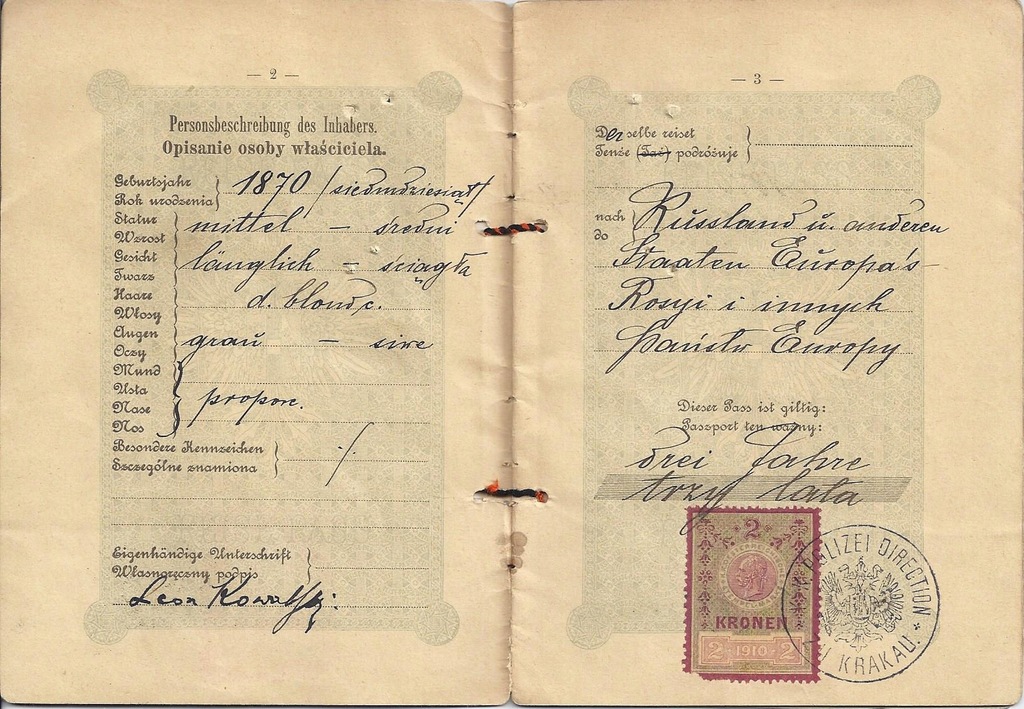 — 2 —
Personsbeschreibung des Inhabers.
Opisanie osoby właściciela.
Geburtsjahr
Rok urodzenia
1870 /siedmdziesiąt/
Statur
Wzrost
mittel – średni
Gesicht
Twarz
länglich – ściągła
Haare
Włosy
d. blond c.
Augen
Oczy
grau – siwe
Mund
Usta
Nase
Nos
propor.
Besondere Kennzeichen
Szczególne znamiona
·/.
Eigenhändige Unterschrift
Własnoręczny podpis
Leon Kowalski
— 3 —
Derselbe reiset
Tenże (Taż) podróżuje
nach
do
Russland u. anderen
Staaten Europa's
Rosyi i innych
Państw Europy
Dieser Pass ist giltig:
Paszport ten ważny:
drei Jahre
trzy lata
2
KRONEN
2 1910 2
POLIZEI DIRECTION
KRAKAU.